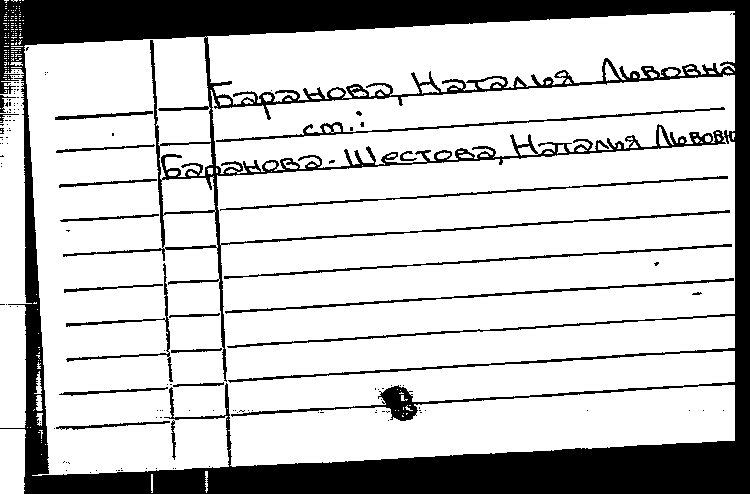 Баранова, Наталья Львовна
см.:
Баранова-Шестова, Наталья Львовн